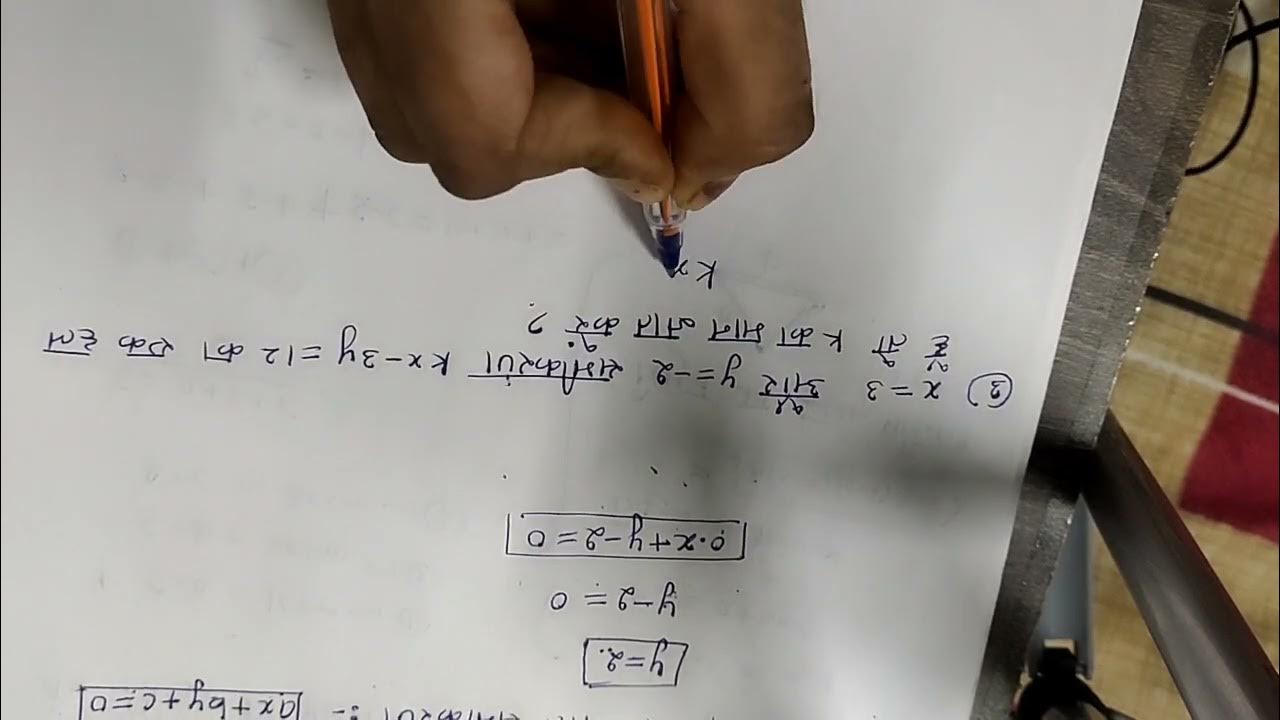 समीकरण :- ax+by+c=0
y=2.
y-2=0
0.x+y-2=0
② x=3 और y=-2 समीकरण kx-3y=12 का एक हल
है तो k का मान ज्ञात करें ?
kx